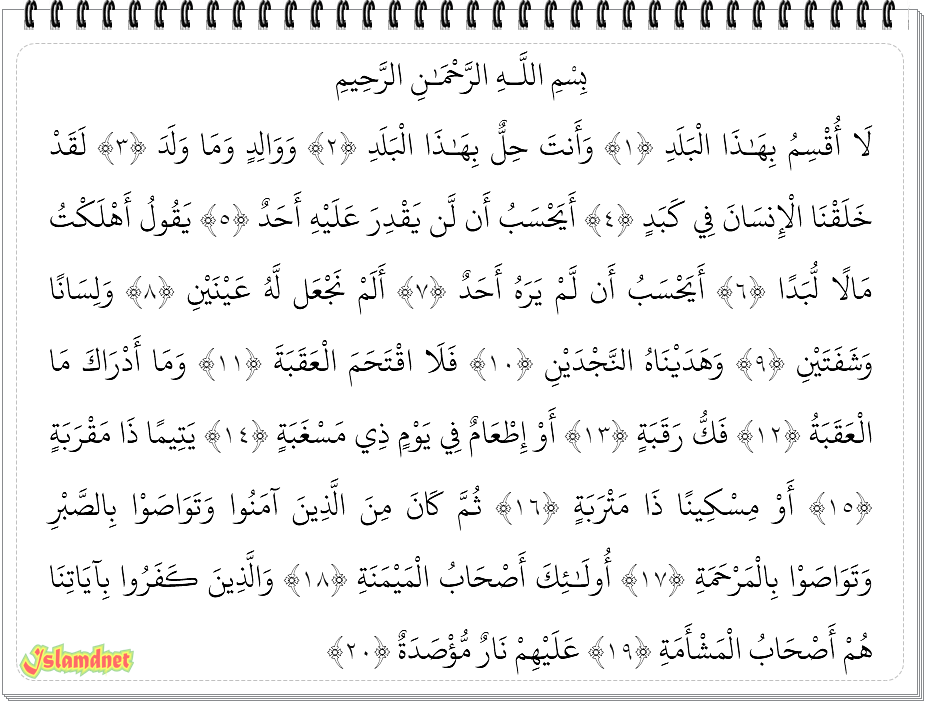 بِسْمِ اللَّـهِ الرَّحْمَـٰنِ الرَّحِيمِ
لَا أُقْسِمُ بِهَـٰذَا الْبَلَدِ ﴿١﴾ وَأَنتَ حِلٌّ بِهَـٰذَا الْبَلَدِ ﴿٢﴾ وَوَالِدٍ وَمَا وَلَدَ ﴿٣﴾ لَقَدْ
خَلَقْنَا الْإِنسَانَ فِي كَبَدٍ ﴿٤﴾ أَيَحْسَبُ أَن لَّن يَقْدِرَ عَلَيْهِ أَحَدٌ ﴿٥﴾ يَقُولُ أَهْلَكْتُ
مَالًا لُّبَدًا ﴿٦﴾ أَيَحْسَبُ أَن لَّمْ يَرَهُ أَحَدٌ ﴿٧﴾ أَلَمْ نَجْعَل لَّهُ عَيْنَيْنِ ﴿٨﴾ وَلِسَانًا
وَشَفَتَيْنِ ﴿٩﴾ وَهَدَيْنَاهُ النَّجْدَيْنِ ﴿١٠﴾ فَلَا اقْتَحَمَ الْعَقَبَةَ ﴿١١﴾ وَمَا أَدْرَاكَ مَا
الْعَقَبَةُ ﴿١٢﴾ فَكُّ رَقَبَةٍ ﴿١٣﴾ أَوْ إِطْعَامٌ فِي يَوْمٍ ذِي مَسْغَبَةٍ ﴿١٤﴾ يَتِيمًا ذَا مَقْرَبَةٍ
﴿١٥﴾ أَوْ مِسْكِينًا ذَا مَتْرَبَةٍ ﴿١٦﴾ ثُمَّ كَانَ مِنَ الَّذِينَ آمَنُوا وَتَوَاصَوْا بِالصَّبْرِ
وَتَوَاصَوْا بِالْمَرْحَمَةِ ﴿١٧﴾ أُولَـٰئِكَ أَصْحَابُ الْمَيْمَنَةِ ﴿١٨﴾ وَالَّذِينَ كَفَرُوا بِآيَاتِنَا
هُمْ أَصْحَابُ الْمَشْأَمَةِ ﴿١٩﴾ عَلَيْهِمْ نَارٌ مُّؤْصَدَةٌ ﴿٢٠﴾
Islamdnet